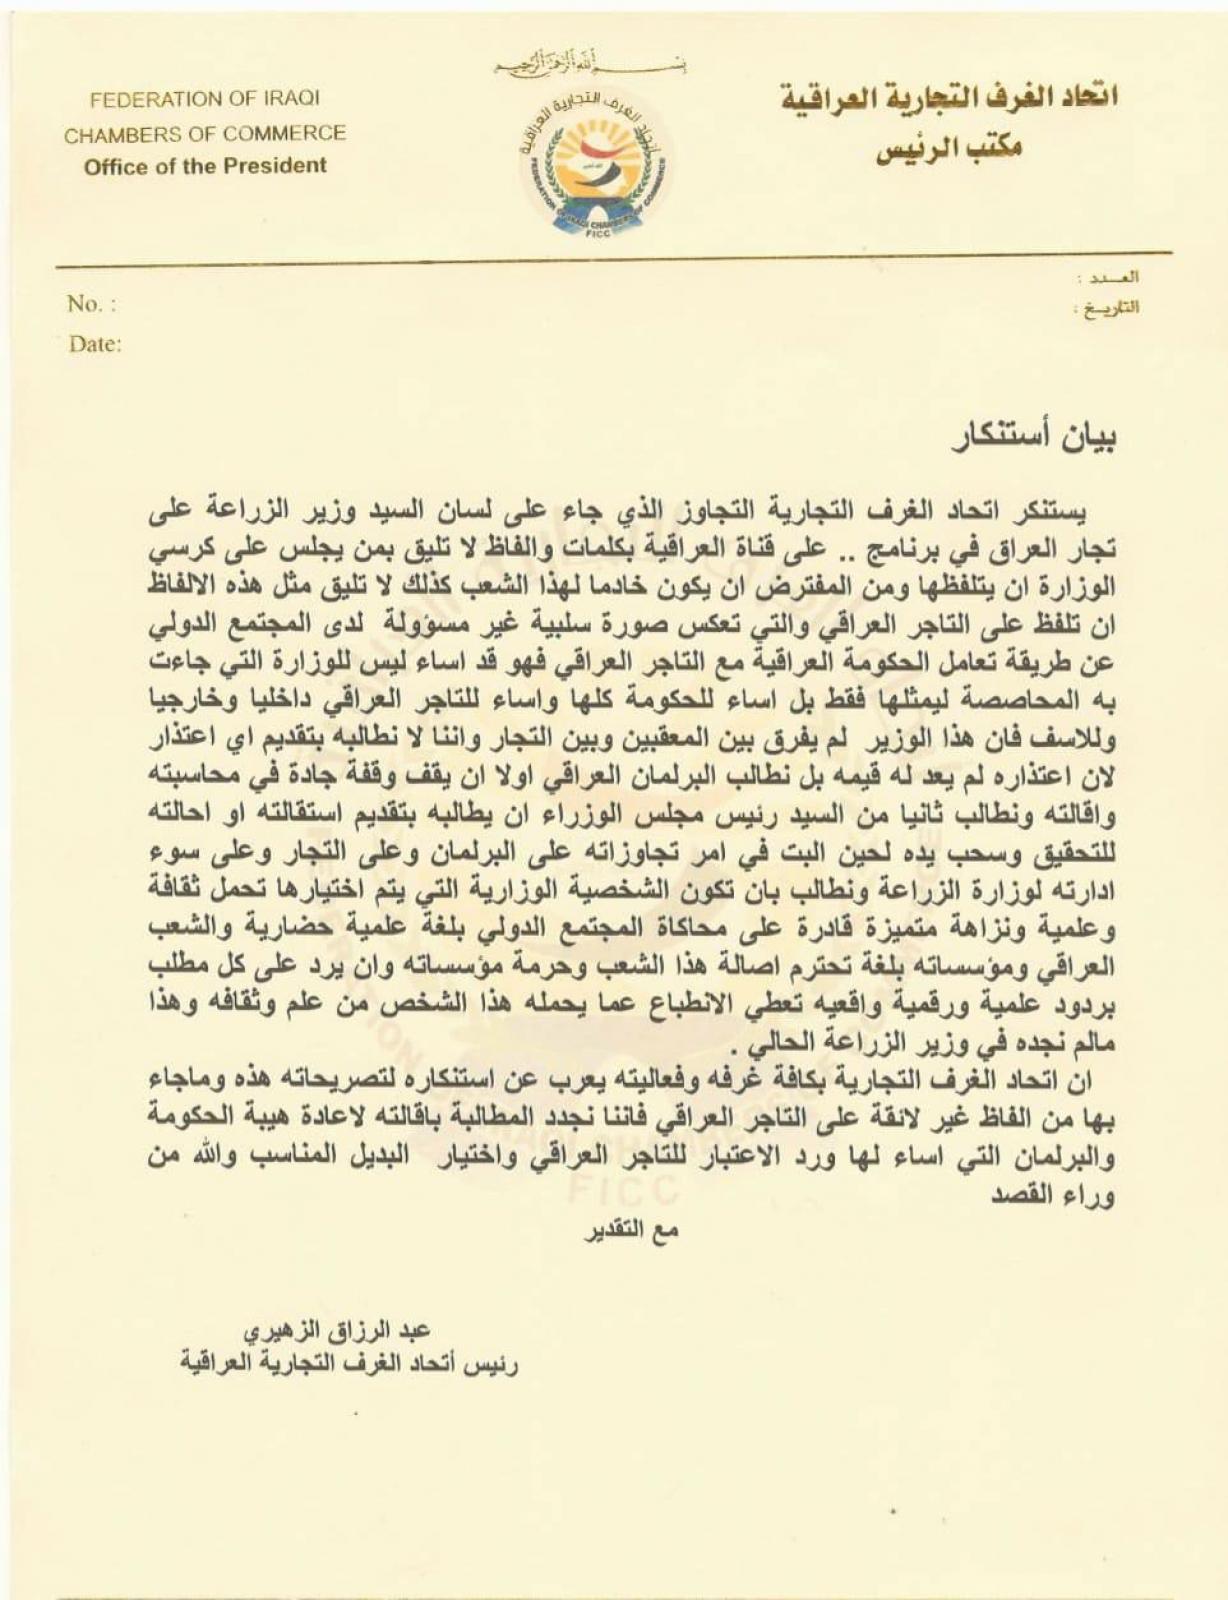 بسم الله الرحمن الرحيم
FEDERATION OF IRAQI
CHAMBERS OF COMMERCE
Office of the President
اتحاد الغرف التجارية العراقية
FEDERATION OF IRAQI CHAMBERS OF COMMERCE
FICC
اتحاد الغرف التجارية العراقية
مكتب الرئيس
No. :
Date:
العدد :
التاريخ :
بيان أستنكار
يستنكر اتحاد الغرف التجارية التجاوز الذي جاء على لسان السيد وزير الزراعة على
تجار العراق في برنامج .. على قناة العراقية بكلمات والفاظ لا تليق بمن يجلس على كرسي
الوزارة ان يتلفظها ومن المفترض ان يكون خادما لهذا الشعب كذلك لا تليق مثل هذه الالفاظ
ان تلفظ على التاجر العراقي والتي تعكس صورة سلبية غير مسؤولة لدى المجتمع الدولي
عن طريقة تعامل الحكومة العراقية مع التاجر العراقي فهو قد اساء ليس للوزارة التي جاءت
به المحاصصة ليمثلها فقط بل اساء للحكومة كلها واساء للتاجر العراقي داخليا وخارجيا
وللاسف فان هذا الوزير لم يفرق بين المعقبين وبين التجار واننا لا نطالبه بتقديم اي اعتذار
لان اعتذاره لم يعد له قيمه بل نطالب البرلمان العراقي اولا ان يقف وقفة جادة في محاسبته
واقالته ونطالب ثانيا من السيد رئيس مجلس الوزراء ان يطالبه بتقديم استقالته او احالته
للتحقيق وسحب يده لحين البت في امر تجاوزاته على البرلمان وعلى التجار وعلى سوء
ادارته لوزارة الزراعة ونطالب بان تكون الشخصية الوزارية التي يتم اختيارها تحمل ثقافة
وعلمية ونزاهة متميزة قادرة على محاكاة المجتمع الدولي بلغة علمية حضارية والشعب
العراقي ومؤسساته بلغة تحترم اصالة هذا الشعب وحرمة مؤسساته وان يرد على كل مطلب
بردود علمية ورقمية واقعيه تعطي الانطباع عما يحمله هذا الشخص من علم وثقافه وهذا
مالم نجده في وزير الزراعة الحالي .
ان اتحاد الغرف التجارية بكافة غرفه وفعاليته يعرب عن استنكاره لتصريحاته هذه وماجاء
بها من الفاظ غير لائقة على التاجر العراقي فاننا نجدد المطالبة باقالته لاعادة هيبة الحكومة
والبرلمان التي اساء لها ورد الاعتبار للتاجر العراقي واختيار البديل المناسب والله من
وراء القصد
مع التقدير
عبد الرزاق الزهيري
رئيس أتحاد الغرف التجارية العراقية
FICC